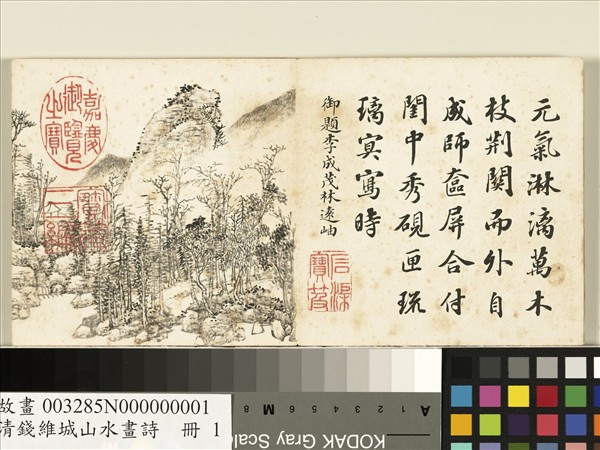 元氣淋漓萬木
枝荆關而外自
成師奩屏合付
閨中秀硯匣琉
璃冥寫時
御題李成茂林遠岫
石渠寶笈
嘉慶御覽之寶
寶笈三編
故畫 003285N000000001
清錢維城山水畫詩 冊 1
A 1 2 3 4 5 6 M 8
KODAK Gray Scal